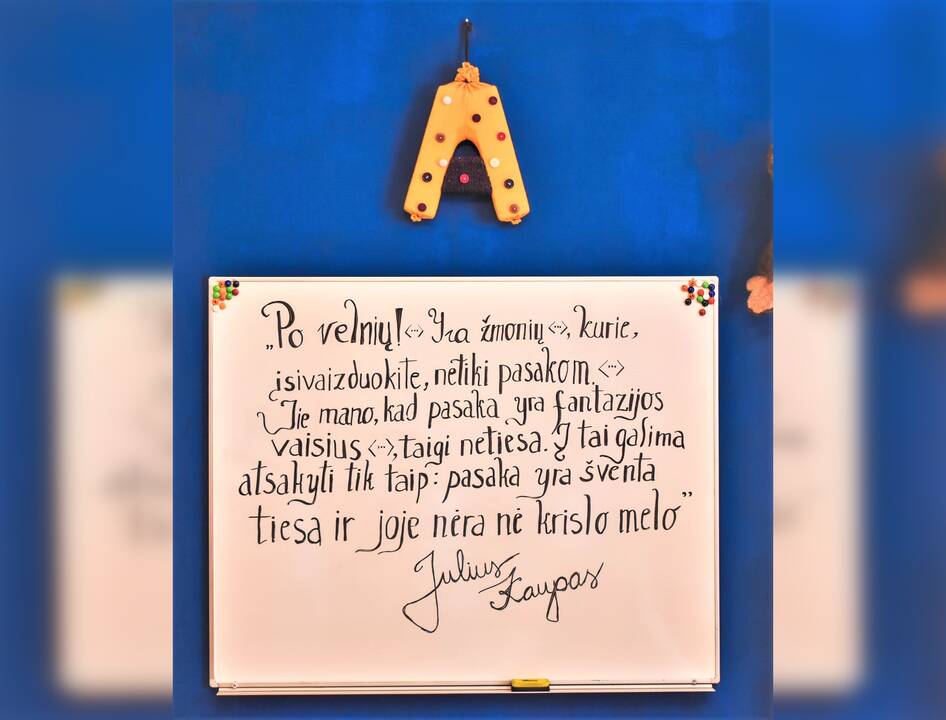 A
„Po velnių! <...> Yra žmonių <...>, kurie,
įsivaizduokite, netiki pasakom. <...>
Jie mano, kad pasaka yra fantazijos
vaisius <...>, taigi netiesa. Į tai galima
atsakyti tik taip: pasaka yra šventa
tiesa ir joje nėra nė krislo melo”
Julius
Kaupas